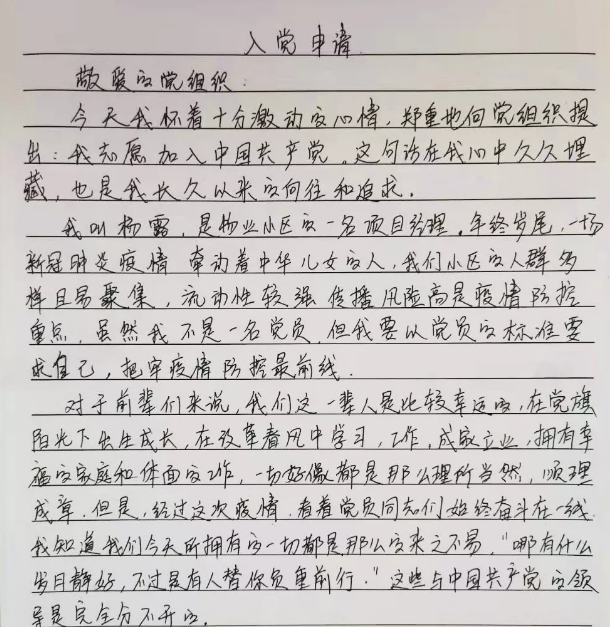 入党申请
敬爱的党组织：
今天我怀着十分激动的心情，郑重地向党组织提
出：我志愿加入中国共产党。这句话在我心中久久埋
藏，也是我长久以来的向往和追求。
我叫杨露，是物业小区的一名项目经理。年终岁尾，一场
新冠肺炎疫情 牵动着中华儿女的人，我们小区的人群多
样且易聚集，流动性较强 传播风险高是疫情防控
重点，虽然我不是一名党员，但我要以党员的标准要
求自己，把牢疫情防控最前线.
对于前辈们来说，我们这一辈人是比较幸运的，在党旗
阳光下出生成长，在改革春风中学习，工作，成家立业，拥有幸
福的家庭和体面的工作，一切好像都是那么理所当然，顺理
成章.但是，经过这次疫情.看着党员同志们始终奋斗在一线.
我知道我们今天所拥有的一切都是那么的来之不易，“哪有什么
岁月静好，不过是有人替你负重前行.”这些与中国共产党的领
导是完全分不开的。